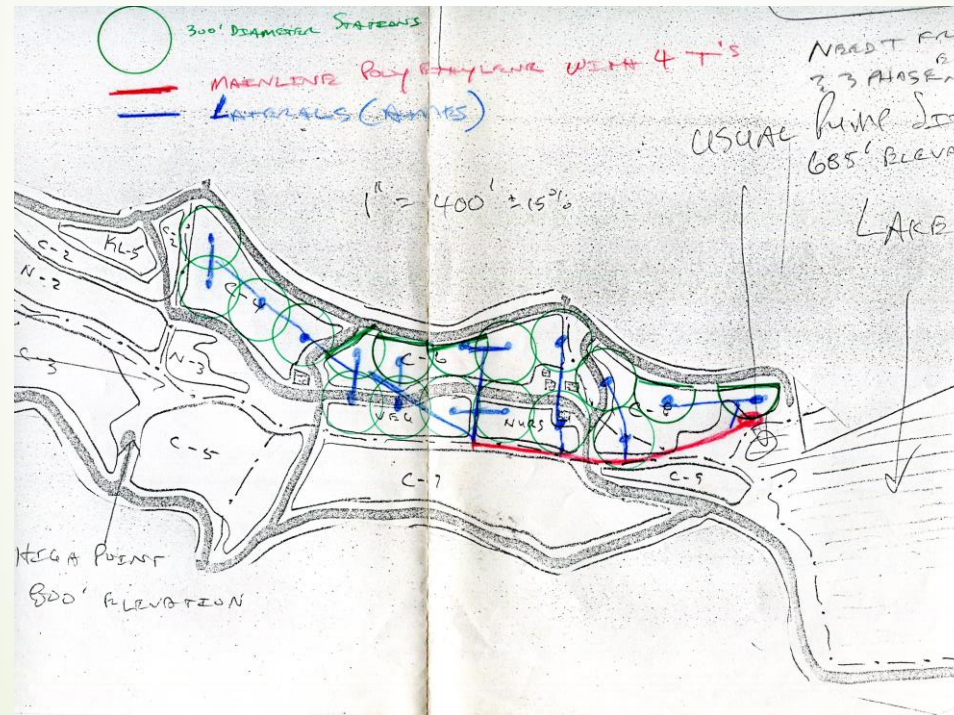 300' DIAMETER STATIONS
MAINLINE POLYETHYLENE WITH 4 T'S
LATERALS (AMES)
NEED
3 PHASE
USUAL PUMP
685' ELEVA
LAKE
1" = 400' ± 15%
KL-5
C-2
N-2
C-4
N-3
3
C-6
C-8
VEG
NURS
C-5
C-7
C-9
HIGH POINT
800' ELEVATION